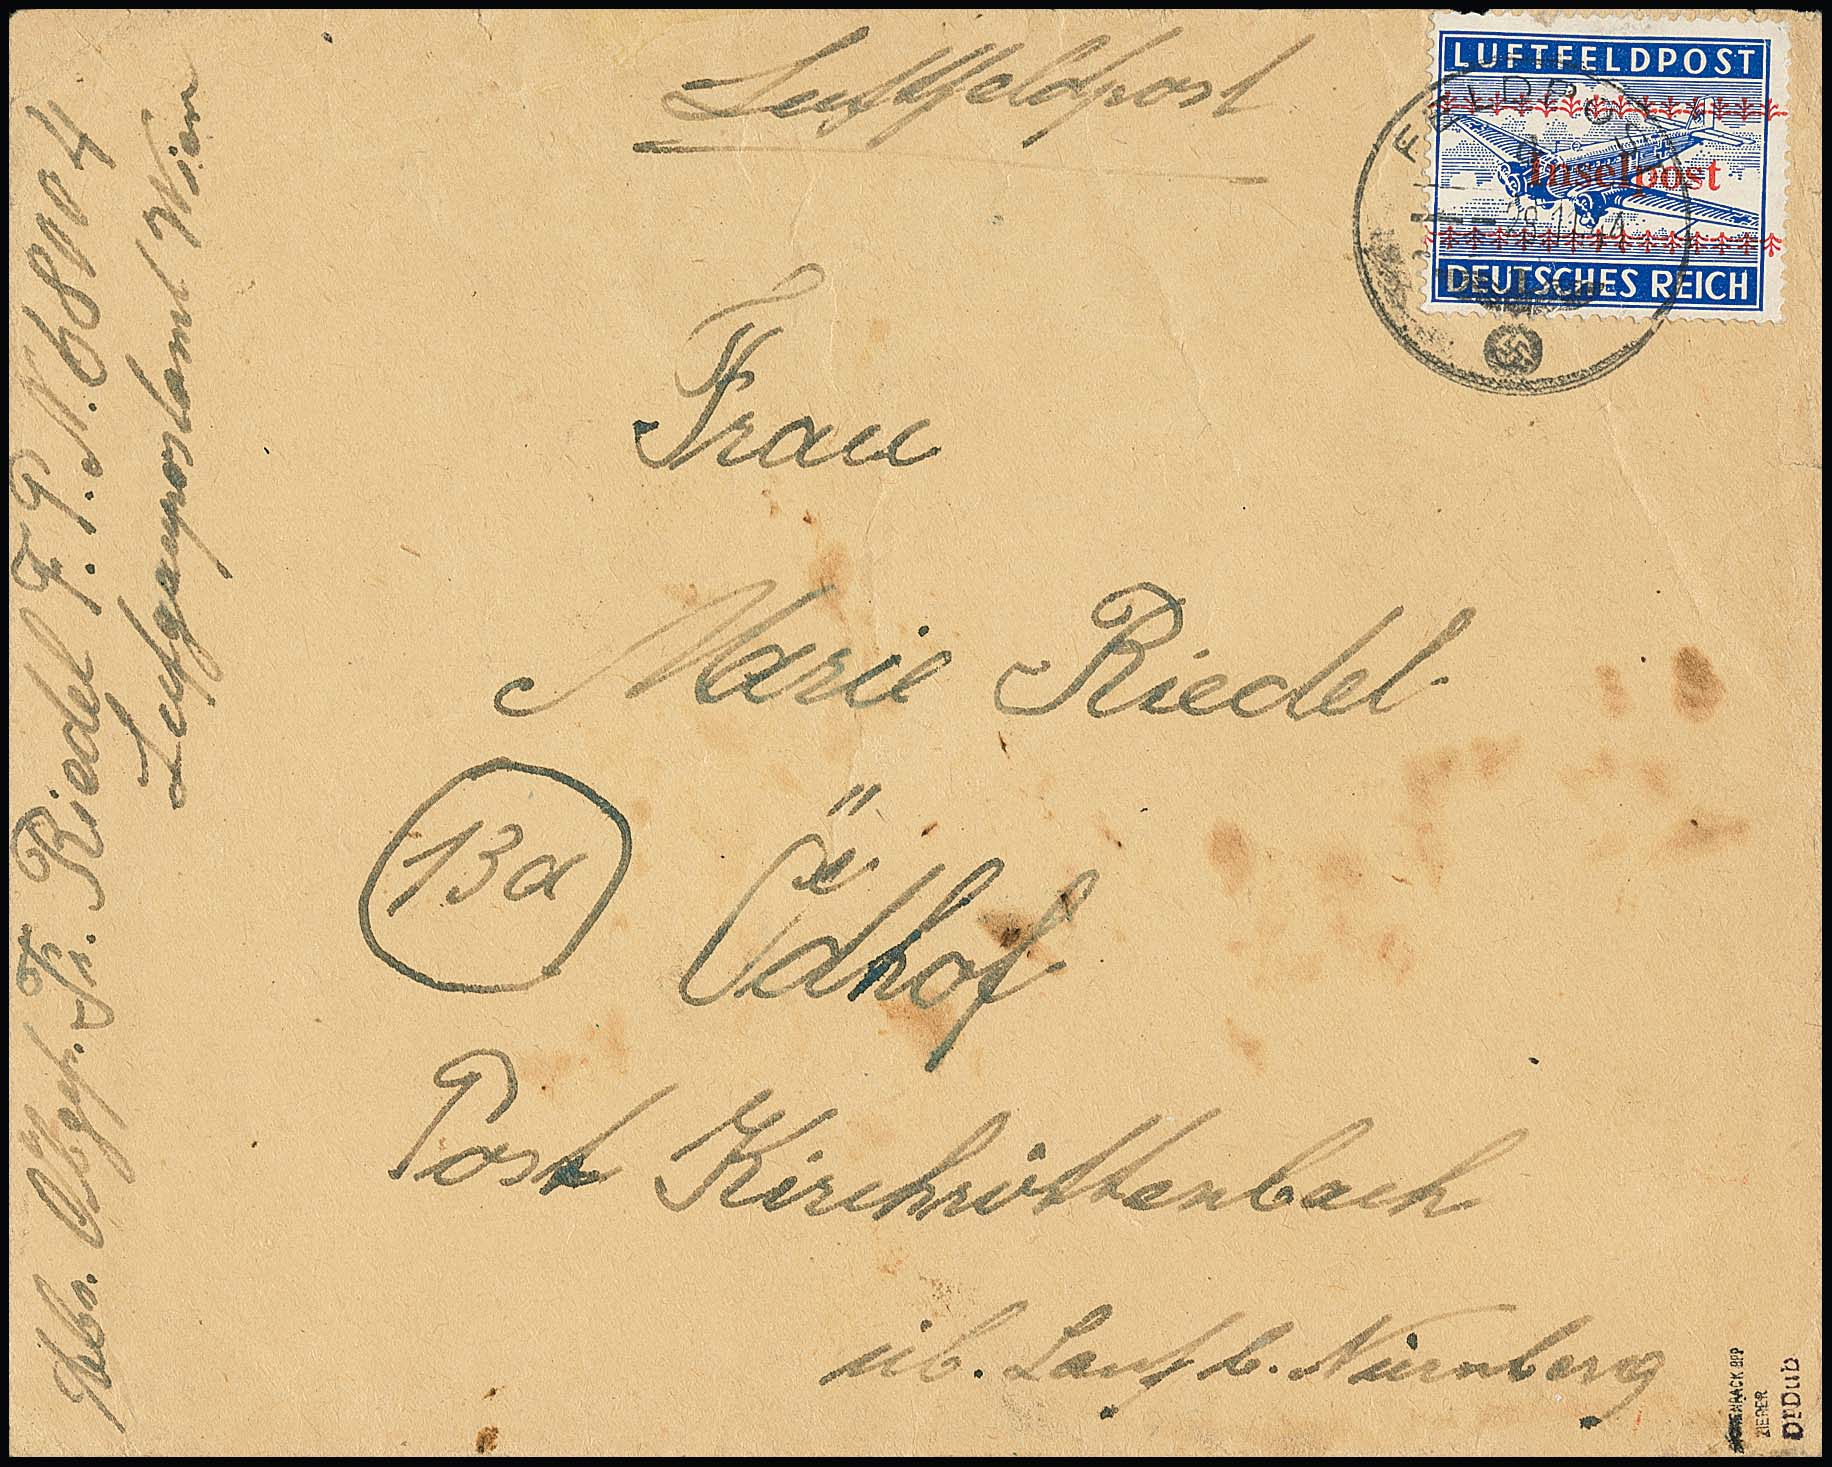 Luftfeldpost
LUFTFELDPOST
Inselpost
DEUTSCHES REICH
FELDPOST
28.11.44
Frau
Marie Riedel
13a
Ödhof
Post Kirchröttenbach
üb. Lauf b. Nürnberg
Abs. Obgefr. Fr. Riedel F.P.N. 68104
Luftgaupostamt Wien
ZIERER
Dr Dub